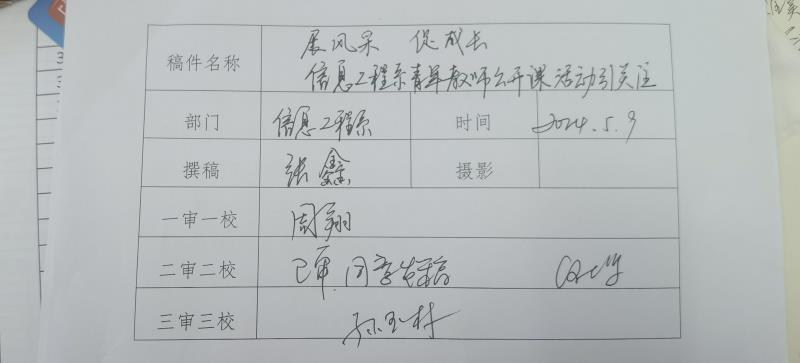 稿件名称 展风采 促成长
信息工程系青年教师公开课活动引关注
部门 信息工程系 时间 2024.5.9
撰稿 张鑫 摄影
一审一校 周翔
二审二校 已审,同意发稿
三审三校 孙玉村